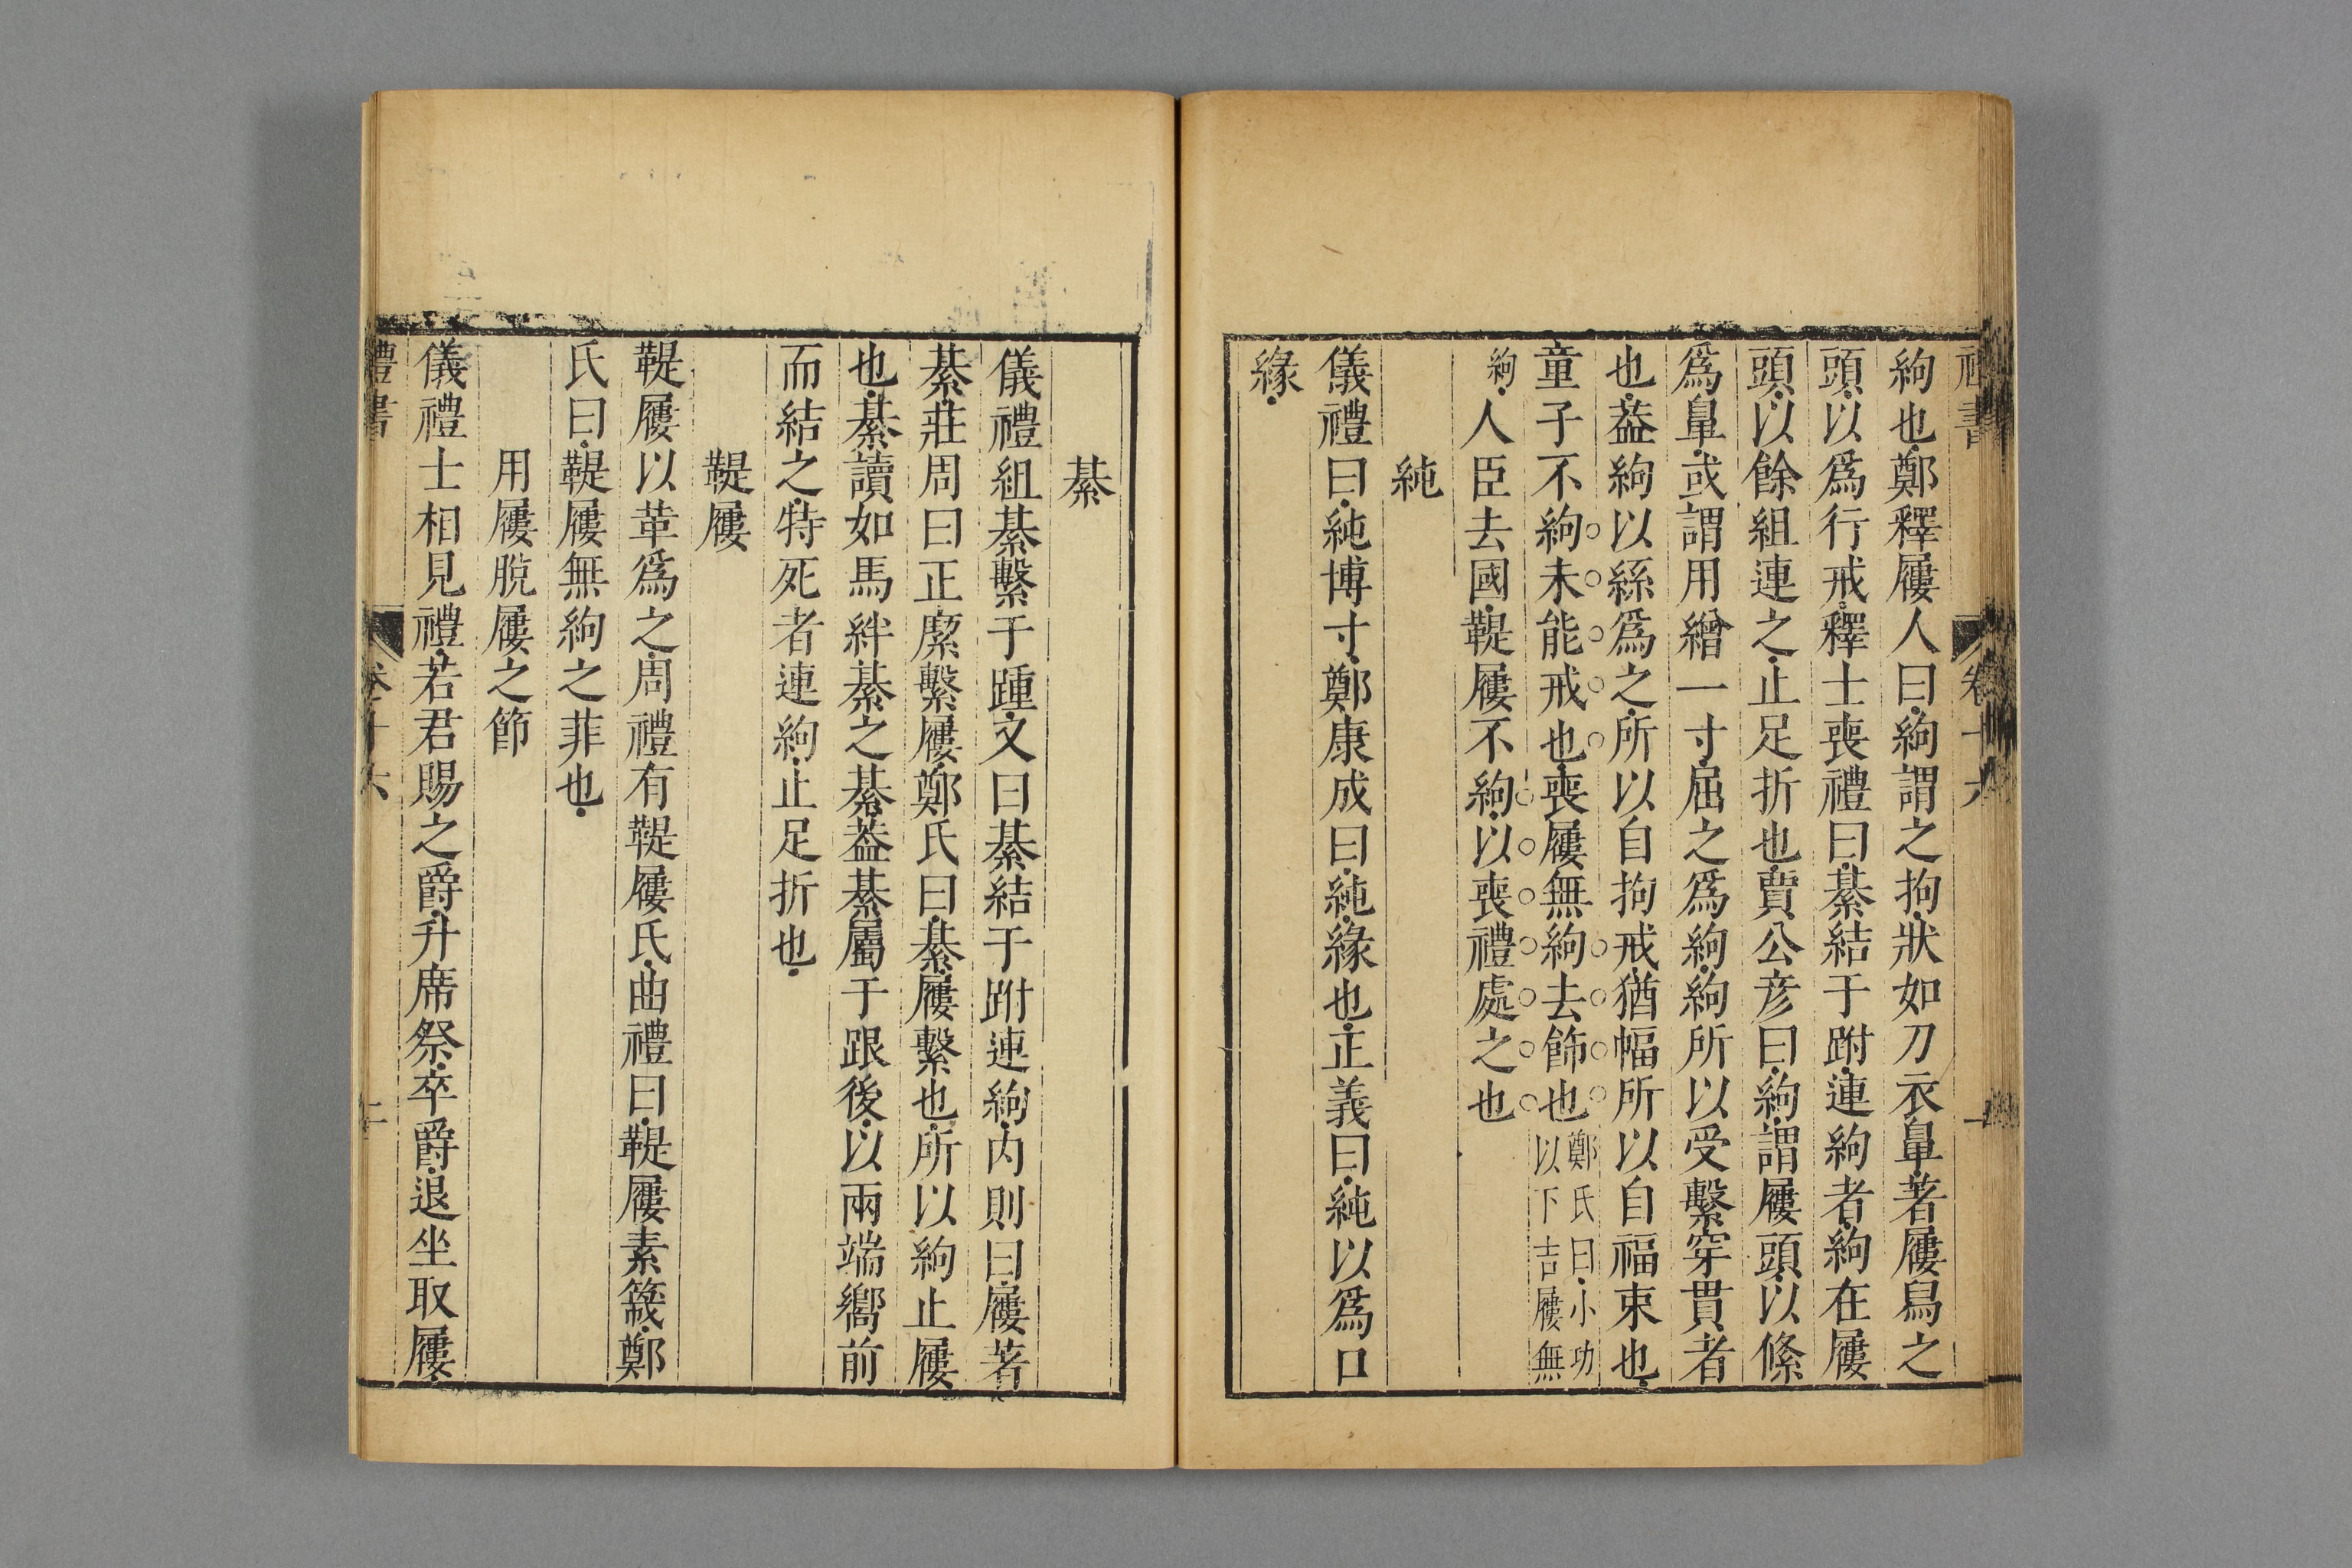 禮書
卷十六
絇也鄭釋屨人曰絇謂之拘狀如刀衣鼻著屨舄之
頭以爲行戒釋士喪禮曰綦結于跗連絇者絇在屨
頭以餘組連之止足折也賈公彦曰絇謂屨頭以絛
爲鼻或謂用繒一寸屈之爲絇絇所以受繫穿貫者
也葢絇以絲爲之所以自拘戒猶幅所以自福束也
童子不絇未能戒也喪屨無絇去飾也鄭氏曰小功以下吉屨無
絇人臣去國鞮屨不絇以喪禮處之也
純
儀禮曰純博寸鄭康成曰純緣也正義曰純以爲口
緣
綦
儀禮組綦繫于踵文曰綦結于跗連絇内則曰屨著
綦莊周曰正縻繫屨鄭氏曰綦屨繫也所以絇止屨
也綦讀如馬絆綦之綦葢綦屬于跟後以兩端嚮前
而結之特死者連絇止足折也
鞮屨
鞮屨以革爲之周禮有鞮屨氏曲禮曰鞮屨素簚鄭
氏曰鞮屨無絇之菲也
用屨脫屨之節
儀禮士相見禮若君賜之爵升席祭卒爵退坐取屨
禮書
卷十六